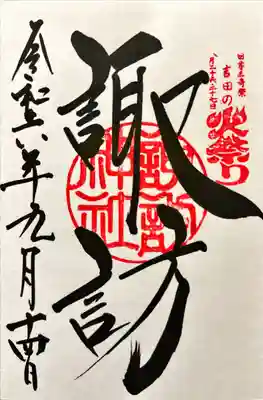 日本三奇祭
吉田の火祭り
八月二十六、二十七日
諏訪
諏訪神社
令和六年九月十四日